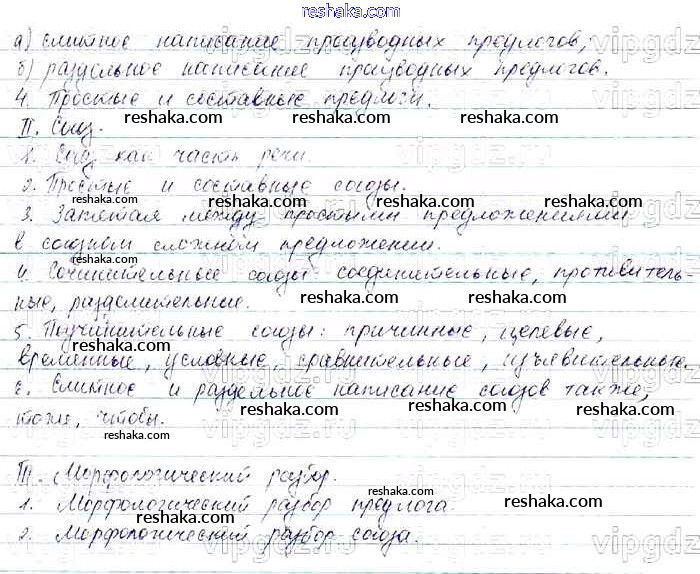 reshaka.com
а) слитное написание производных предлогов;
б) раздельное написание производных предлогов.
4. Простые и составные предлоги.
reshaka.com reshaka.com reshaka.com
II. Союз.
1. Союз как часть речи.
reshaka.com
2. Простые и составные союзы.
reshaka.com
3. Запятая между простыми предложениями
reshaka.com
в союзном сложном предложении.
reshaka.com reshaka.com
4. Сочинительные союзы: соединительные, противитель-
ные, разделительные.
reshaka.com reshaka.com
5. Подчинительные союзы: причинные, целевые,
reshaka.com
временные, условные, сравнительные, изъявительные,
reshaka.com
6. Слитное и раздельное написание союзов также,
reshaka.com reshaka.com
тоже, чтобы.
reshaka.com
III. Морфологический разбор.
reshaka.com
1. Морфологический разбор предлога.
reshaka.com reshaka.com
2. Морфологический разбор союза.
reshaka.com
vipgdz.ru